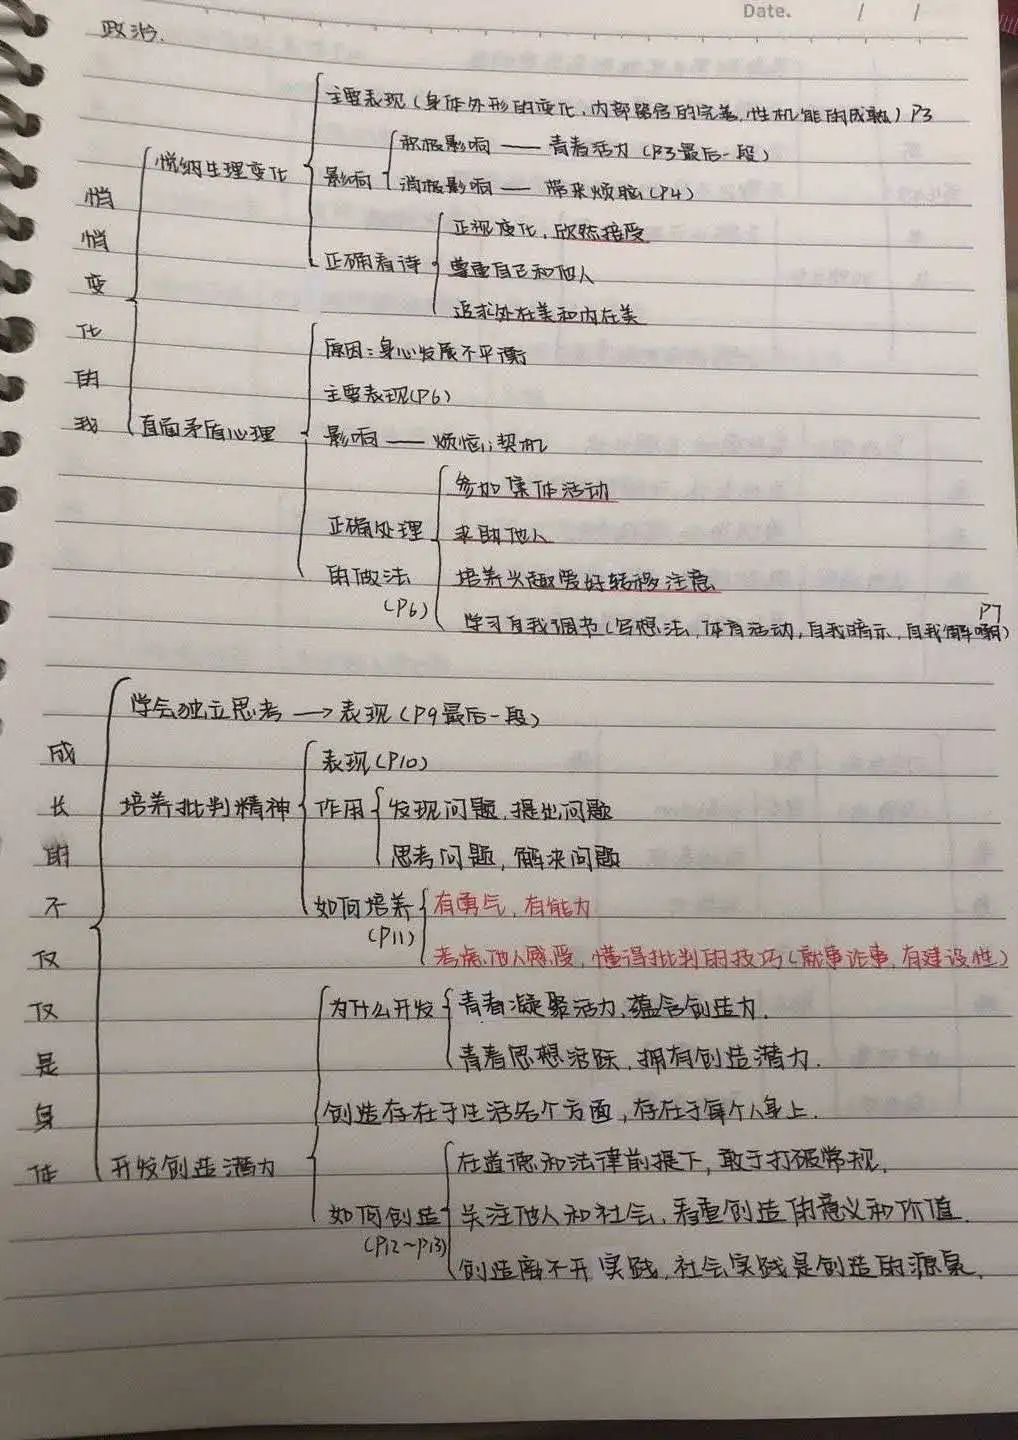 Date. / /
政治.
悄悄变化的我
悦纳生理变化
主要表现(身体外形的变化,内部器官的完善,性机能的成熟) P3
影响
积极影响——青春活力(P3最后一段)
消极影响——带来烦恼(P4)
正确看待
正视变化,欣然接受
尊重自己和他人
追求外在美和内在美
直面矛盾心理
原因:身心发展不平衡
主要表现(P6)
影响——烦恼;契机
正确处理
的做法
(P6)
参加集体活动
求助他人
培养兴趣爱好转移注意
学习自我调节(写想法,体育活动,自我暗示,自我解嘲) P7
成长的不仅仅是身体
学会独立思考→表现(P9最后一段)
培养批判精神
表现(P10)
作用
发现问题,提出问题
思考问题,解决问题
如何培养
(P11)
有勇气,有能力
考虑他人感受,懂得批判的技巧(就事论事,有建设性)
开发创造潜力
为什么开发
青春凝聚活力,蕴含创造力.
青春思想活跃,拥有创造潜力.
创造存在于生活各个方面,存在于每个人身上.
如何创造
(P12~P13)
在道德和法律前提下,敢于打破常规.
关注他人和社会,看重创造的意义和价值.
创造离不开实践,社会实践是创造的源泉.